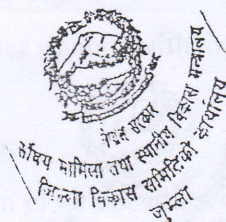 नेपाल सरकार
संघिय मामिला तथा स्थानीय विकास मन्त्रालय
जिल्ला विकास समितिको कार्यालय
जुम्ला